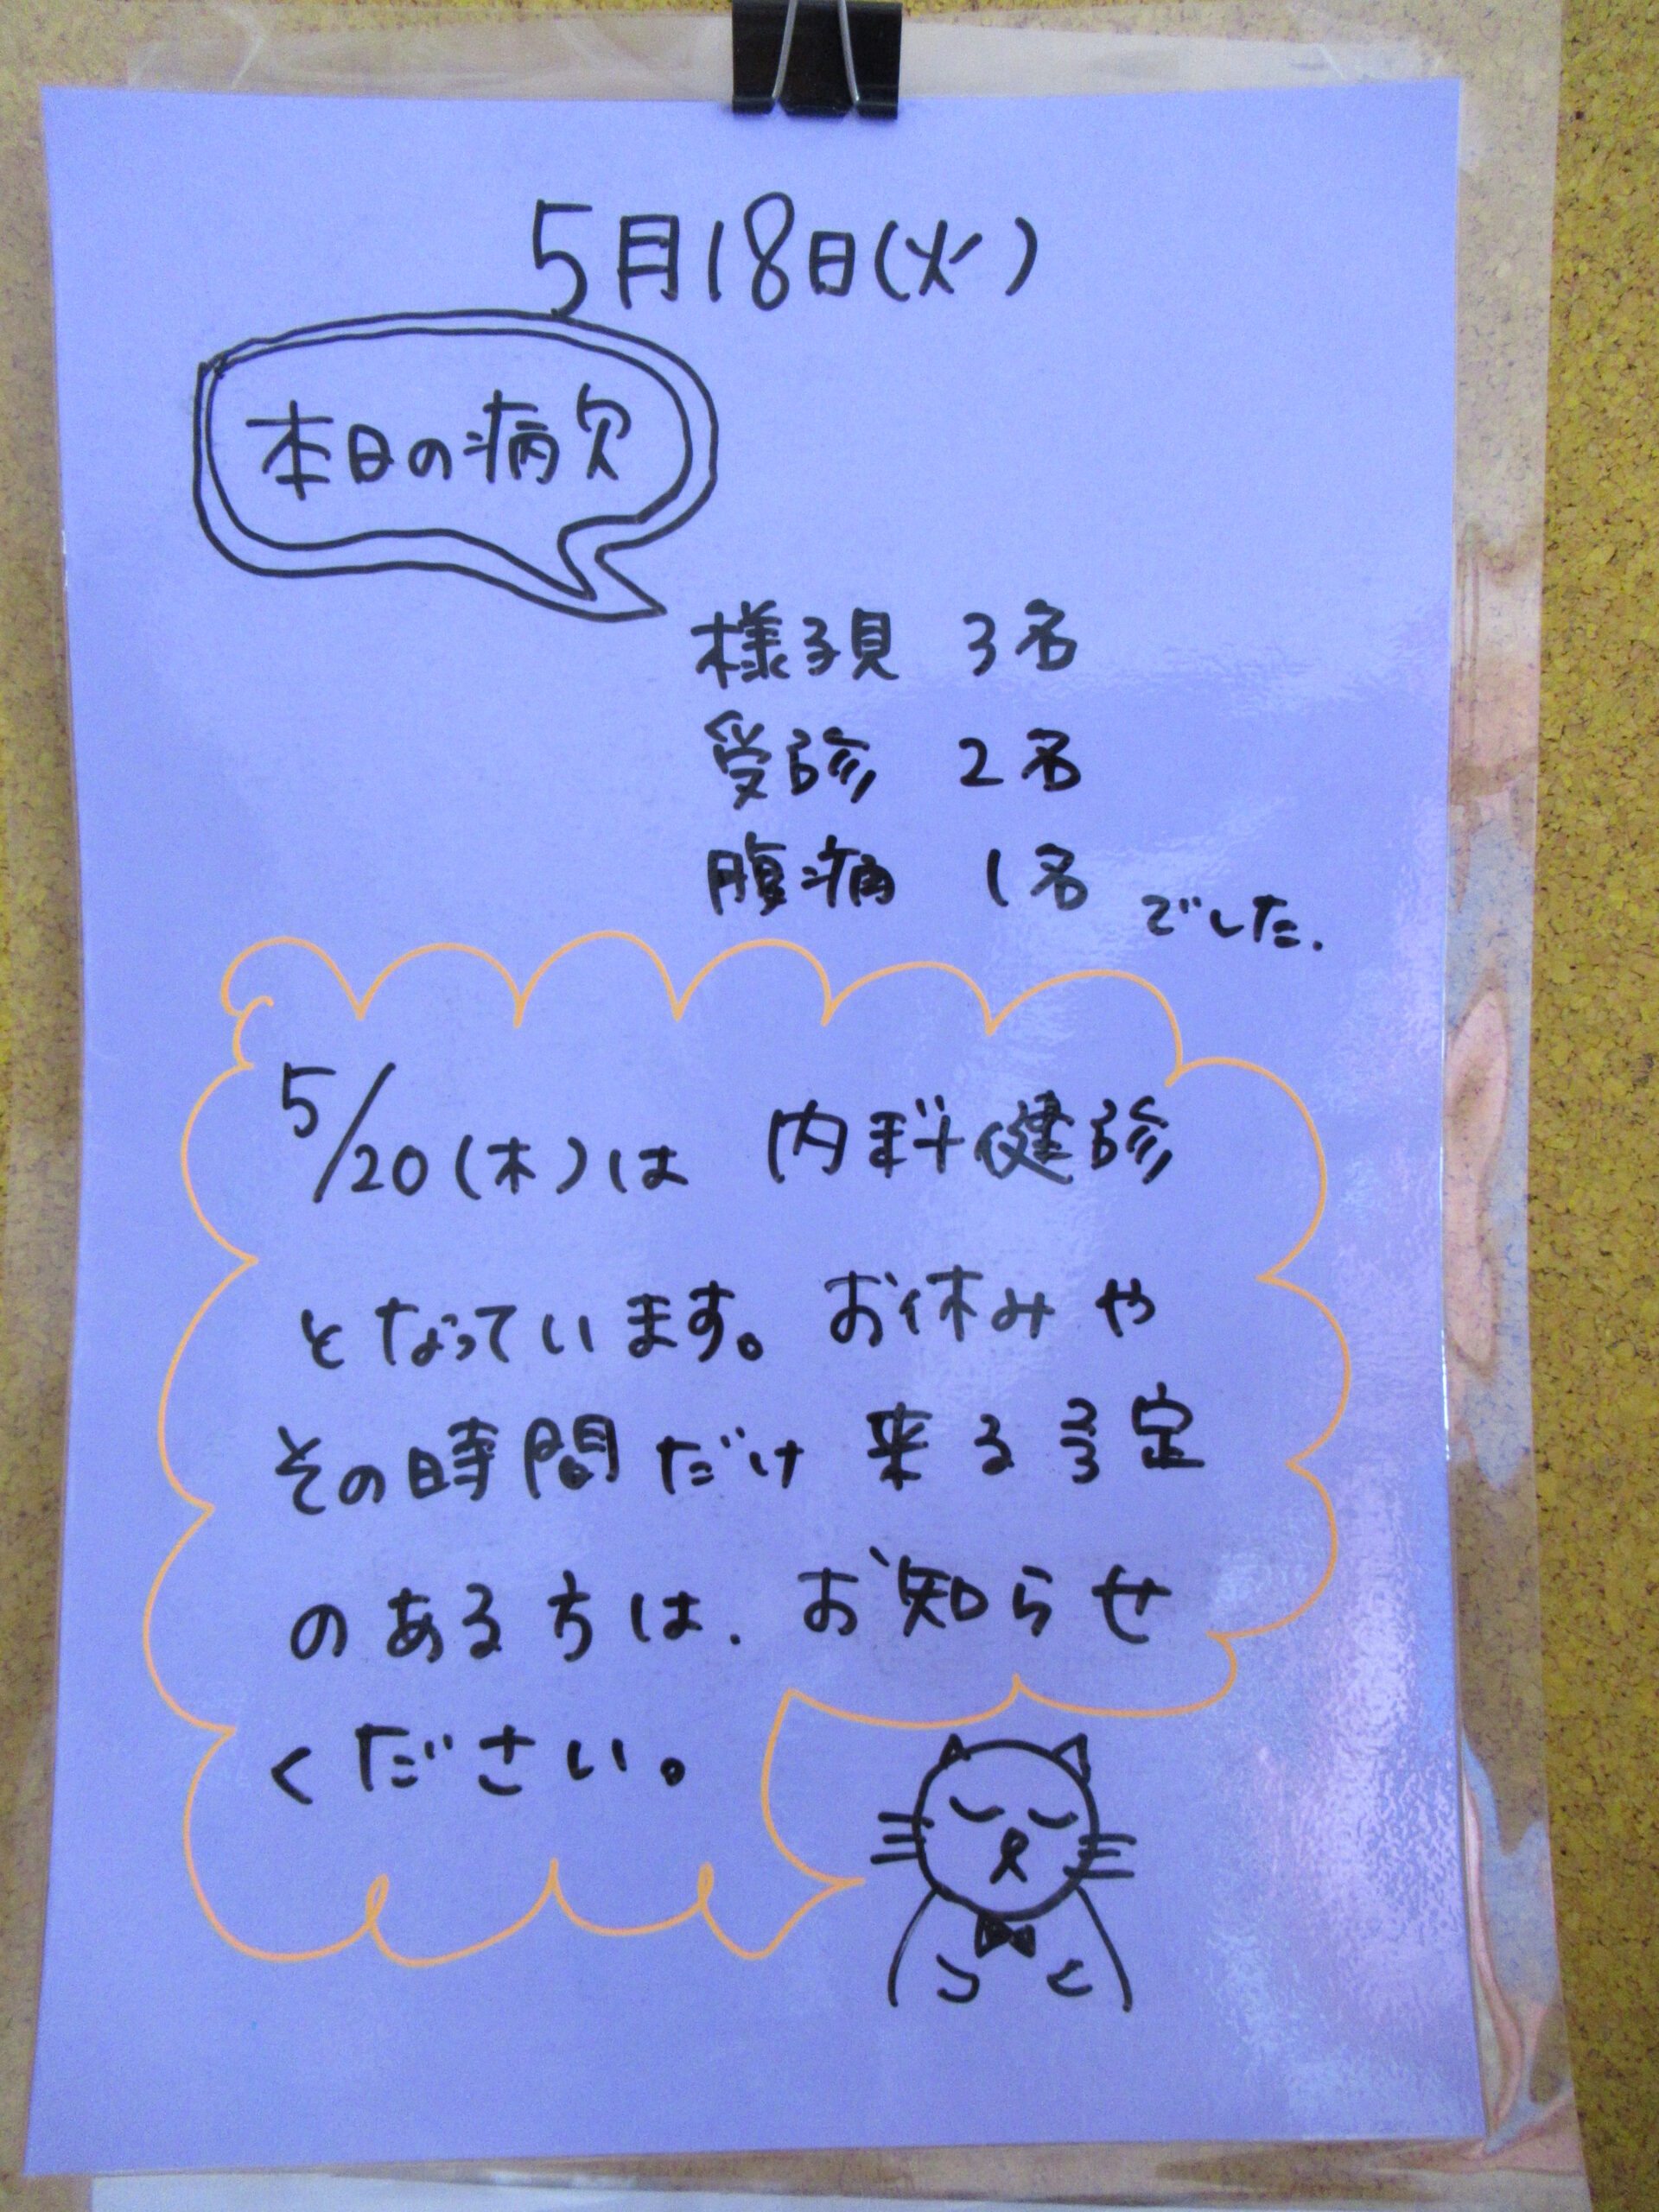 5月18日(火)
本日の病欠
様子見 3名
受診 2名
腹痛 1名 でした.
5/20(木)は 内科健診
となっています。お休みや
その時間だけ来る予定
のある方は、お知らせ
ください。